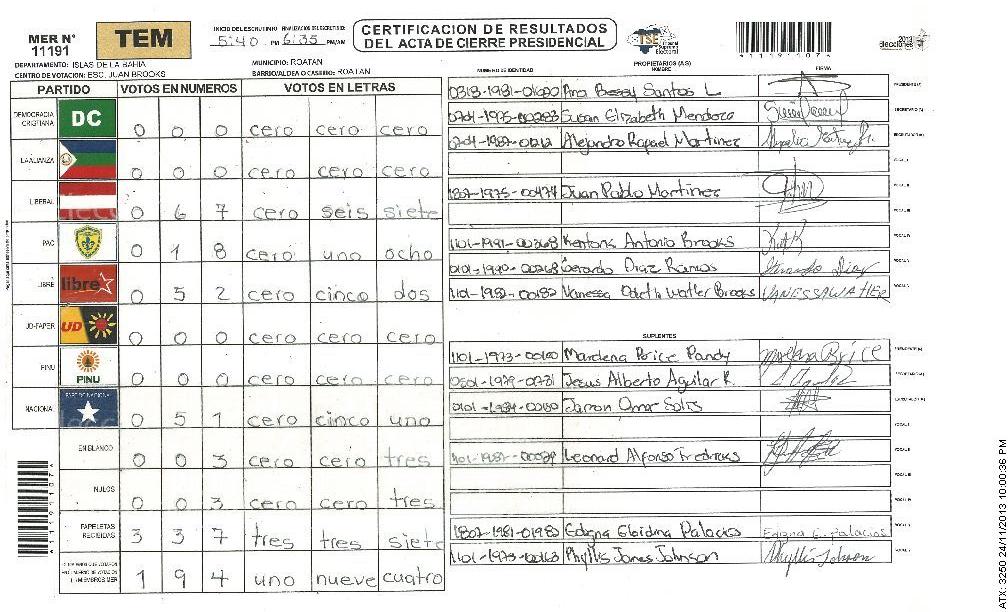 MER N° 11191
TEM
INICIO DEL ESCRUTINIO 5:40 PM
FINALIZACION DEL ESCRUTINIO: 6:35 PM/AM
CERTIFICACION DE RESULTADOS
DEL ACTA DE CIERRE PRESIDENCIAL
TSE
Tribunal Supremo Electoral
* 1 1 1 9 1 1 0 7 *
2013
elecciones
DEPARTAMENTO: ISLAS DE LA BAHIA
MUNICIPIO: ROATAN
CENTRO DE VOTACION: ESC. JUAN BROOKS
BARRIO/ALDEA O CASERIO: ROATAN
PARTIDO VOTOS EN NUMEROS VOTOS EN LETRAS
DEMOCRACIA CRISTIANA DC 0 0 0 cero cero cero
LA ALIANZA 0 0 0 cero cero cero
LIBERAL 0 6 7 cero seis siete
PAC 0 1 8 cero uno ocho
LIBRE libre 0 5 2 cero cinco dos
UD-FAPER UD 0 0 0 cero cero cero
PINU PINU 0 0 0 cero cero cero
NACIONAL 0 5 1 cero cinco uno
EN BLANCO 0 0 3 cero cero tres
NULOS 0 0 3 cero cero tres
PAPELETAS RECIBIDAS 3 3 7 tres tres siete
1 9 4 uno nueve cuatro
NUMERO DE IDENTIDAD PROPIETARIOS (AS) NOMBRE FIRMA
Ana Bessy Santos L
Susan Elizabeth Mendoza
Alejandro Rafael Martinez
1807-1975-00474 Juan Pablo Martinez
Kentons Antonio Brooks
Gerardo Diaz Ramos
1101-1982-00182 Vanessa Odeth Watler Brooks VANESSA WATLER
SUPLENTES
1101-1973-00100 Mardena Price Pandy
Jesus Alberto Aguilar R.
Jarron Omar Solis
Leonard Alfonso Fredricks
1807-1981-01983 Edigna Eloidina Palacios Edigna E. Palacios
1101-1973-00163 Phyllis Jones Johnson Phyllis Johnson
ATX: 3250 24/11/2013 10:00:36 PM